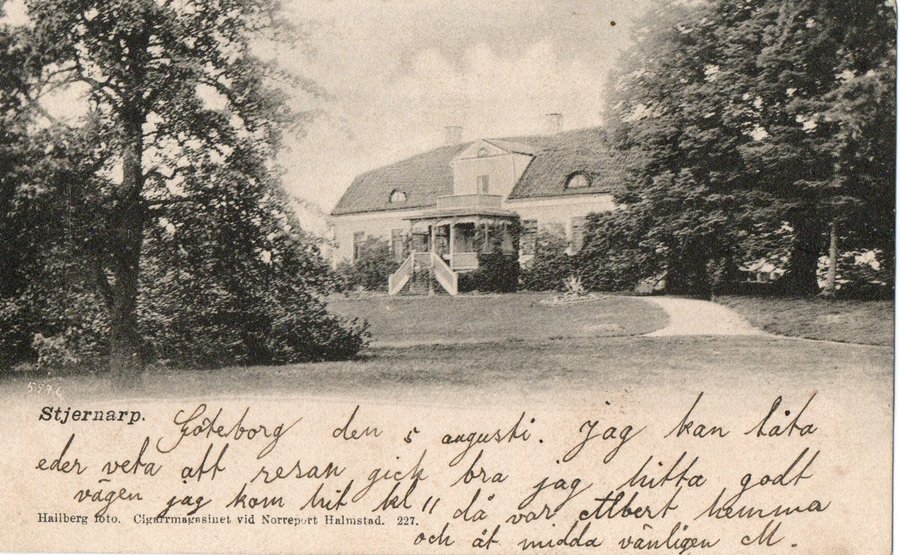 5596
Stjernarp.
Göteborg den 5 augusti. Jag kan låta
eder veta att resan gick bra jag hitta godt
vägen jag kom hit kl 11 då var Albert hemma
Hallberg foto. Cigarrmagasinet vid Norreport Halmstad. 227.
och åt midda vänligen M.